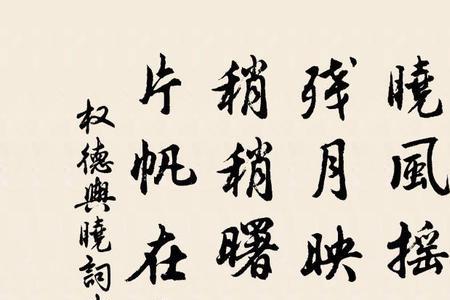 曉風搖
残月映
稍稍曙
片帆在
权德輿曉詞